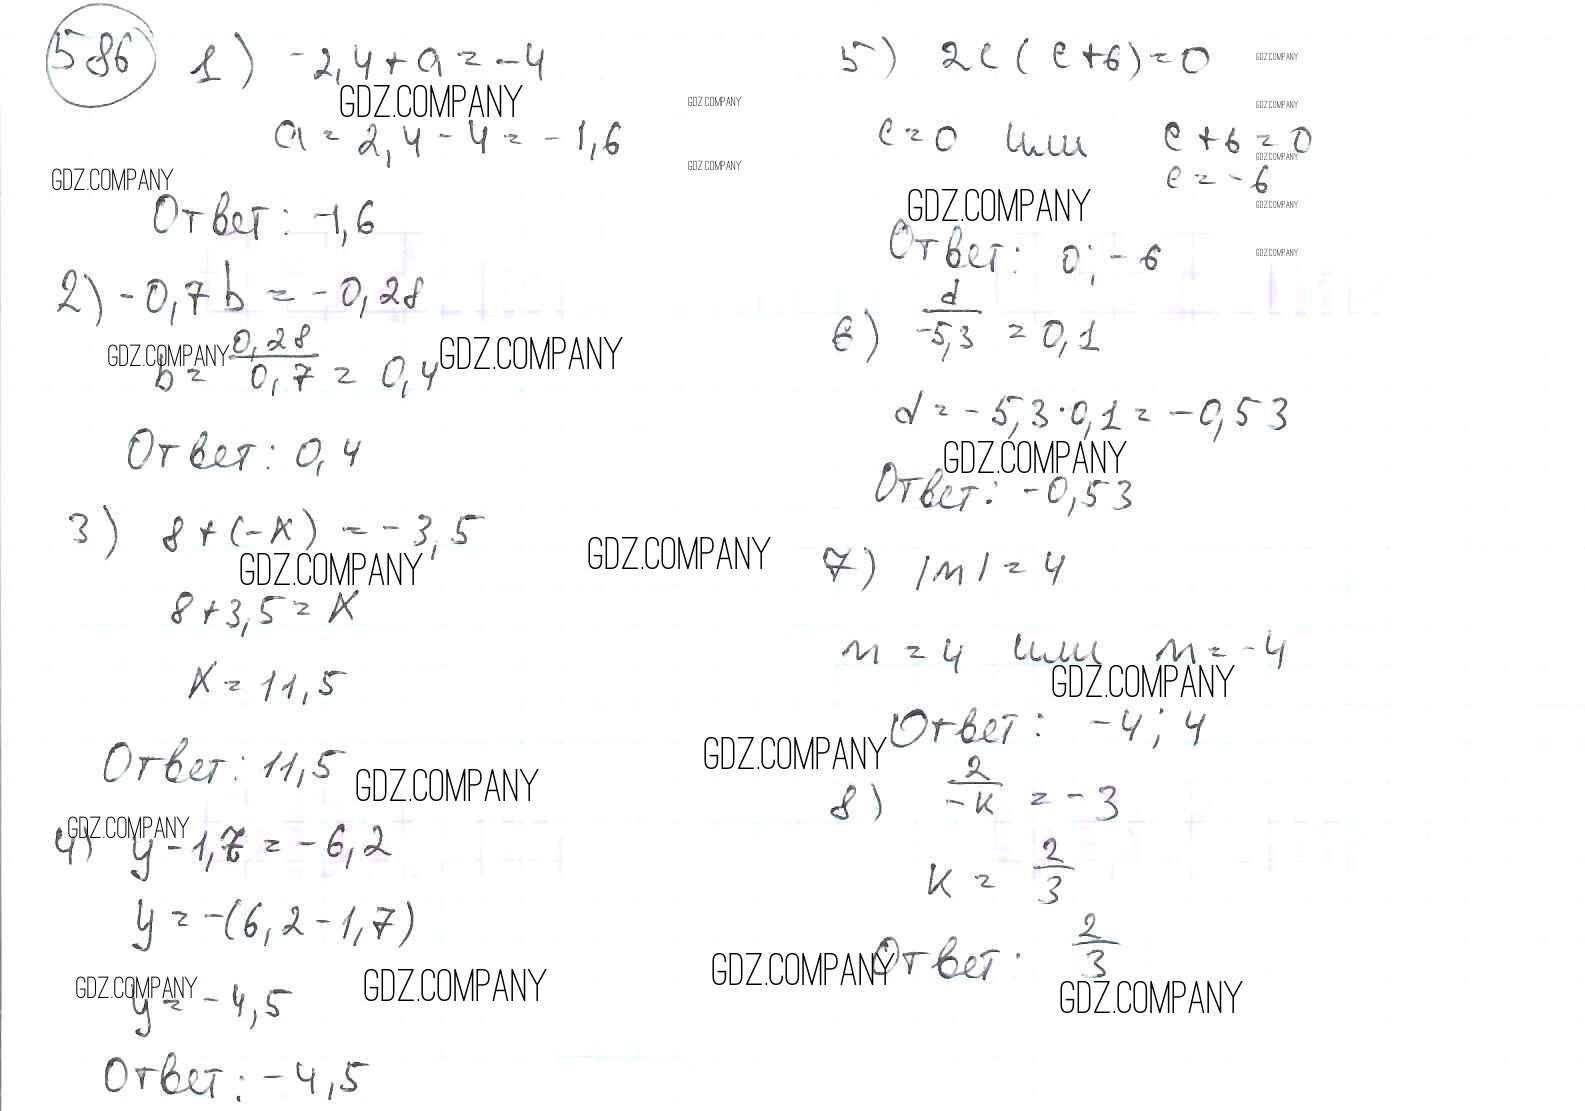 586 1) -2,4+a=-4
GDZ.COMPANY
a=2,4-4=-1,6
GDZ.COMPANY
Ответ: -1,6
2) -0,7b=-0,28
GDZ.COMPANY
b=0,28/0,7=0,4
GDZ.COMPANY
Ответ: 0,4
3) 8+(-x)=-3,5
GDZ.COMPANY
8+3,5=x
x=11,5
Ответ: 11,5
GDZ.COMPANY
GDZ.COMPANY
4) y-1,7=-6,2
y=-(6,2-1,7)
GDZ.COMPANY
GDZ.COMPANY
y=-4,5
Ответ: -4,5
GDZ.COMPANY
GDZ.COMPANY
GDZ.COMPANY
5) 2c(c+6)=0
GDZ.COMPANY
GDZ.COMPANY
c=0 или c+6=0
GDZ.COMPANY
c=-6
GDZ.COMPANY
GDZ.COMPANY
Ответ: 0; -6
GDZ.COMPANY
6) d/-5,3=0,1
d=-5,3·0,1=-0,53
GDZ.COMPANY
Ответ: -0,53
7) |m|=4
m=4 или m=-4
GDZ.COMPANY
Ответ: -4; 4
GDZ.COMPANY
8) 2/-k=-3
k=2/3
Ответ: 2/3
GDZ.COMPANY
GDZ.COMPANY